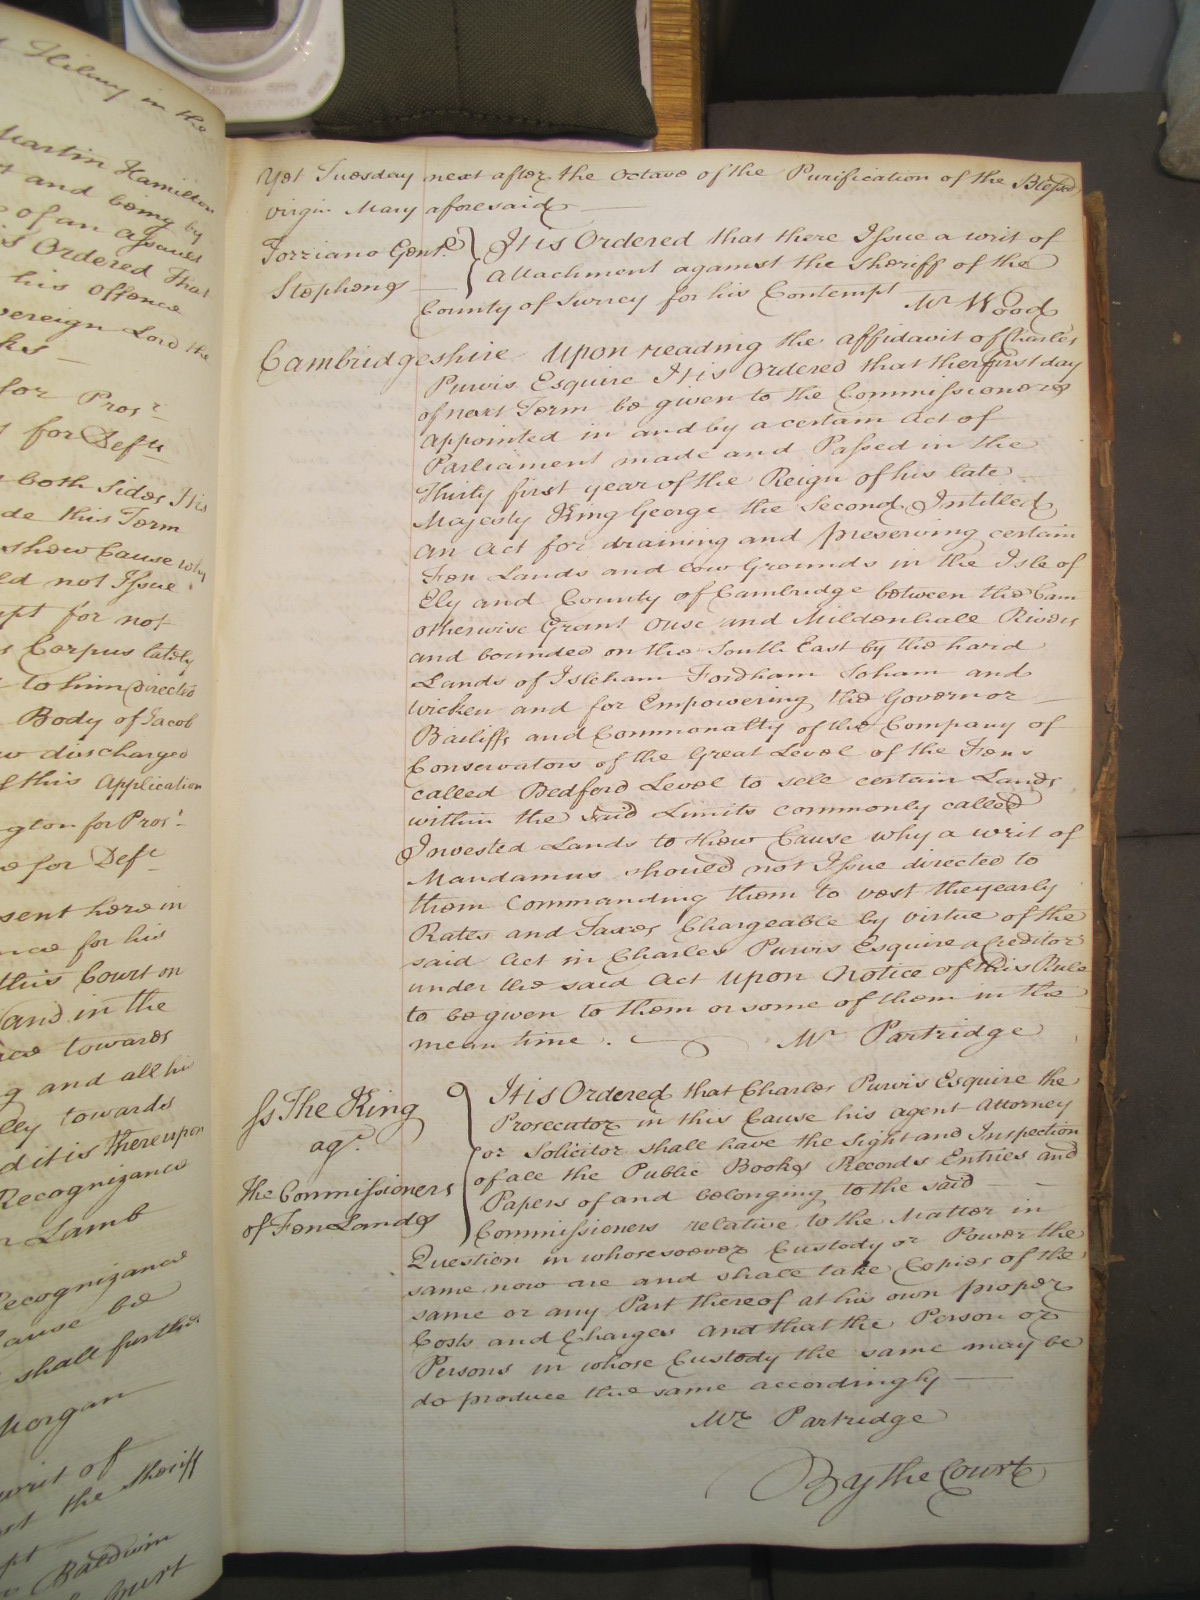 Hilary in the
Martin Hamilton
and being by
of an assault
is Ordered that
his offence
Sovereign Lord the
for Pros.r
for Deft
both Sides It is
de this Term
shew Cause why
ld not Issue
mpt for not
Corpus lately
to him directed
Body of Jacob
w discharged
of this Application
gton for Pros.r
for Deft
sent here in
nce for his
this Court on
and in the
ace towards
g and all his
lly towards
d it is thereupon
Recognizance
Lamb
Recognizance
Cause be
shall further
Morgan
writ of
the Sheriff
Baldwin
Court
Yet Tuesday next after the Octave of the Purification of the Blessed
virgin Mary aforesaid
Torriano Gent. It is Ordered that there Issue a writ of
Stephens Attachment against the Sheriff of the
County of Surrey for his Contempt Mr Wood
Cambridgeshire Upon reading the affidavit of Charles
Purvis Esquire It is Ordered that the first day
of next Term be given to the Commissioners
appointed in and by a certain Act of
Parliament made and Passed in the
Thirty first year of the Reign of his late
Majesty King George the Second Intitled
an Act for draining and preserving certain
Fen Lands and Low Grounds in the Isle of
Ely and County of Cambridge between the Cam
otherwise Grant Ouse and Mildenhall Rivers
and bounded on the South East by the hard
Lands of Isleham Fordham Soham and
Wicken and for Empowering the Governor
Bailiffs and Commonalty of the Company of
Conservators of the Great Level of the Fens
called Bedford Level to sell certain Lands
within the said Limits commonly called
Invested Lands to shew Cause why a writ of
Mandamus should not Issue directed to
them Commanding them to vest the yearly
Rates and Taxes Chargeable by virtue of the
said Act in Charles Purvis Esquire a Creditor
under the said Act Upon Notice of this Rule
to be given to them or some of them in the
mean time. Mr Partridge
Ss The King
agt.
The Commissioners
of Fen Lands
It is Ordered that Charles Purvis Esquire the
Prosecutor in this Cause his agent Attorney
or Solicitor shall have the Sight and Inspection
of all the Public Books Records Entries and
Papers of and belonging to the said
Commissioners relative to the Matter in
Question in whosesoever Custody or Power the
same now are and shall take Copies of the
same or any Part thereof at his own proper
Costs and Charges and that the Person or
Persons in whose Custody the same may be
do produce the same accordingly
Mr Partridge
By the Court